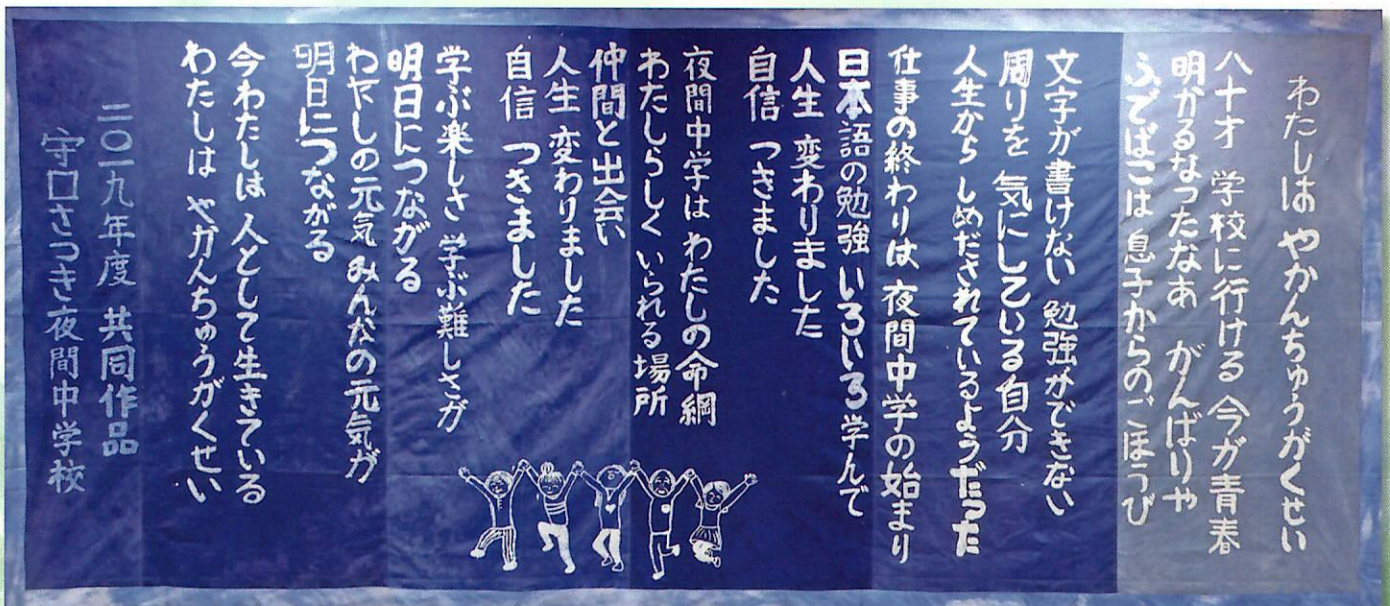 わたしは やかんちゅうがくせい
八十才 学校に行ける 今が青春
明かるなったなあ がんばりや
ふでばこは 息子からのごほうび
文字が書けない 勉強ができない
周りを 気にしている自分
人生から しめだされているようだった
仕事の終わりは 夜間中学の始まり
日本語の勉強 いろいろ学んで
人生 変わりました
自信 つきました
夜間中学は わたしの命綱
わたしらしく いられる場所
仲間と出会い
人生 変わりました
自信 つきました
学ぶ楽しさ 学ぶ難しさが
明日につながる
わたしの元気 みんなの元気が
明日につながる
今わたしは 人として生きている
わたしは やかんちゅうがくせい
二〇一九年度 共同作品
守口さつき夜間中学校